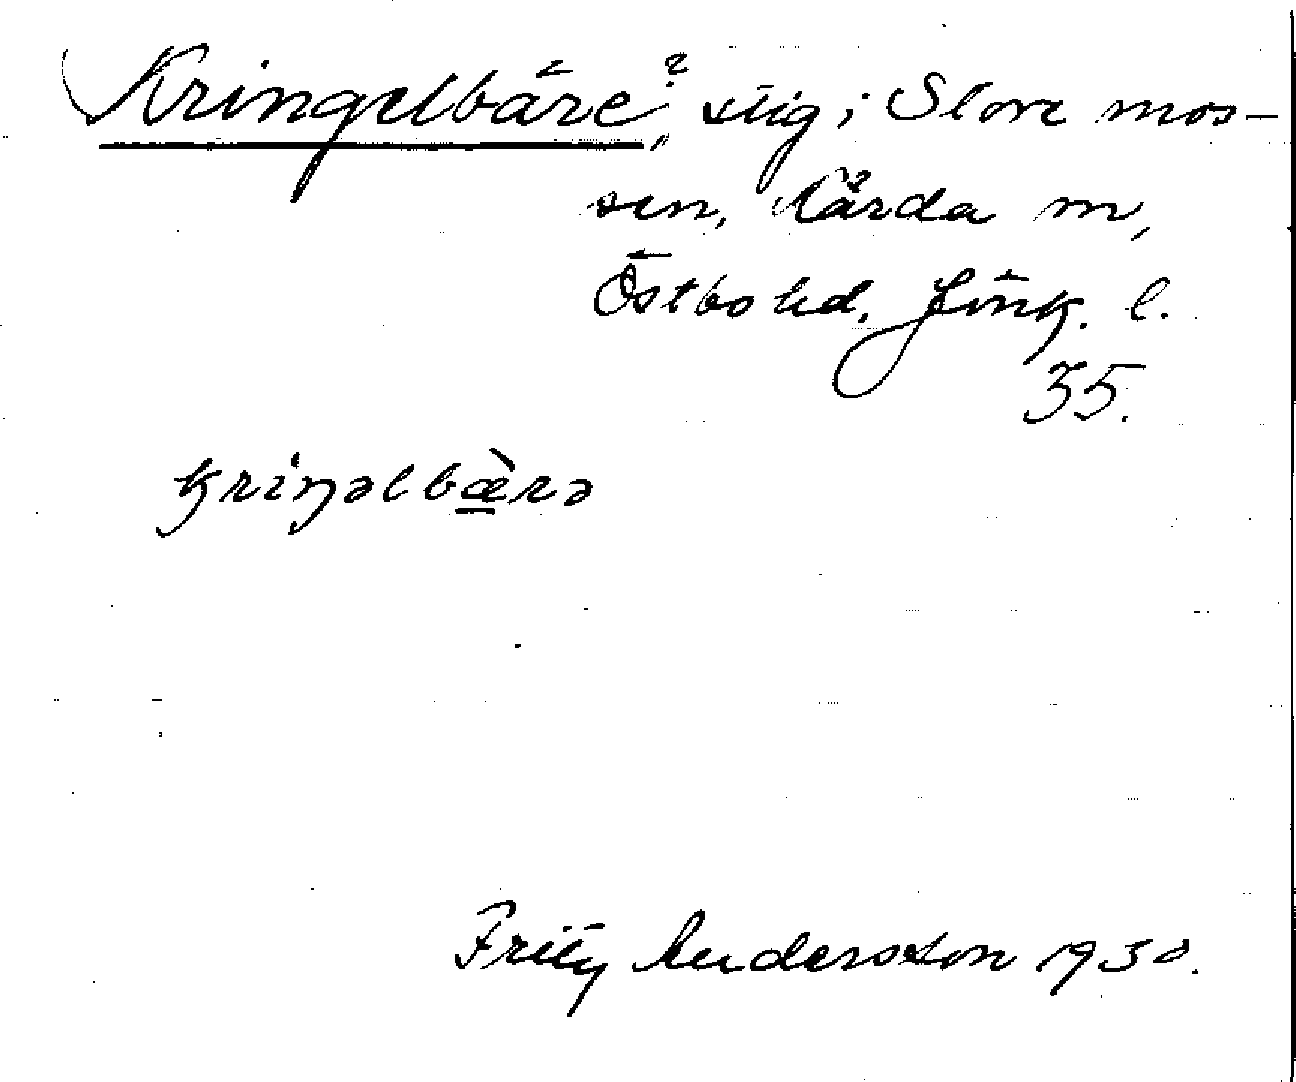 Kringelbäre?, stig i Store mos-
sen, Kärda sn,
Östbo hd. Jönk. l.
35.
kriŋəlbæ̀rə
Fritz Andersson 1930.